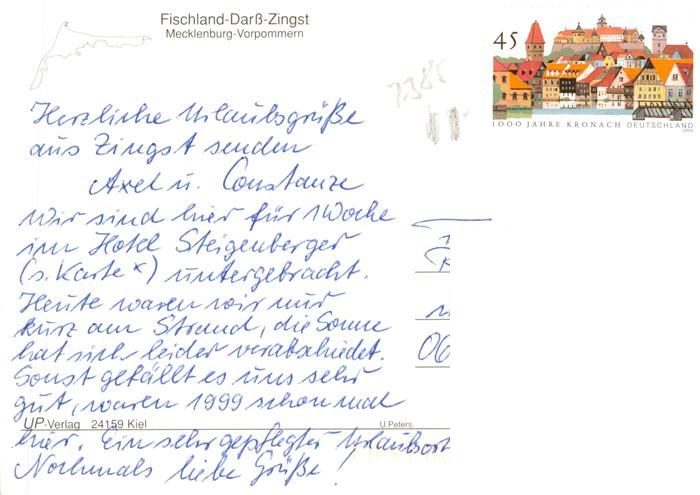 Fischland-Darß-Zingst
Mecklenburg-Vorpommern
45
1000 JAHRE KRONACH DEUTSCHLAND
Herzliche Urlaubsgrüße
aus Zingst senden
Axel u. Constanze
Wir sind hier für 1 Woche
im Hotel Steigenberger
(s. Karte x) untergebracht.
Heute waren wir nur
kurz am Strand, die Sonne
hat sich leider verabschiedet.
Sonst gefällt es uns sehr
gut, waren 1999 schon mal
UP-Verlag 24159 Kiel U.Peters
hier. Ein sehr gepflegter Urlaubsort
Nochmals liebe Grüße!
06